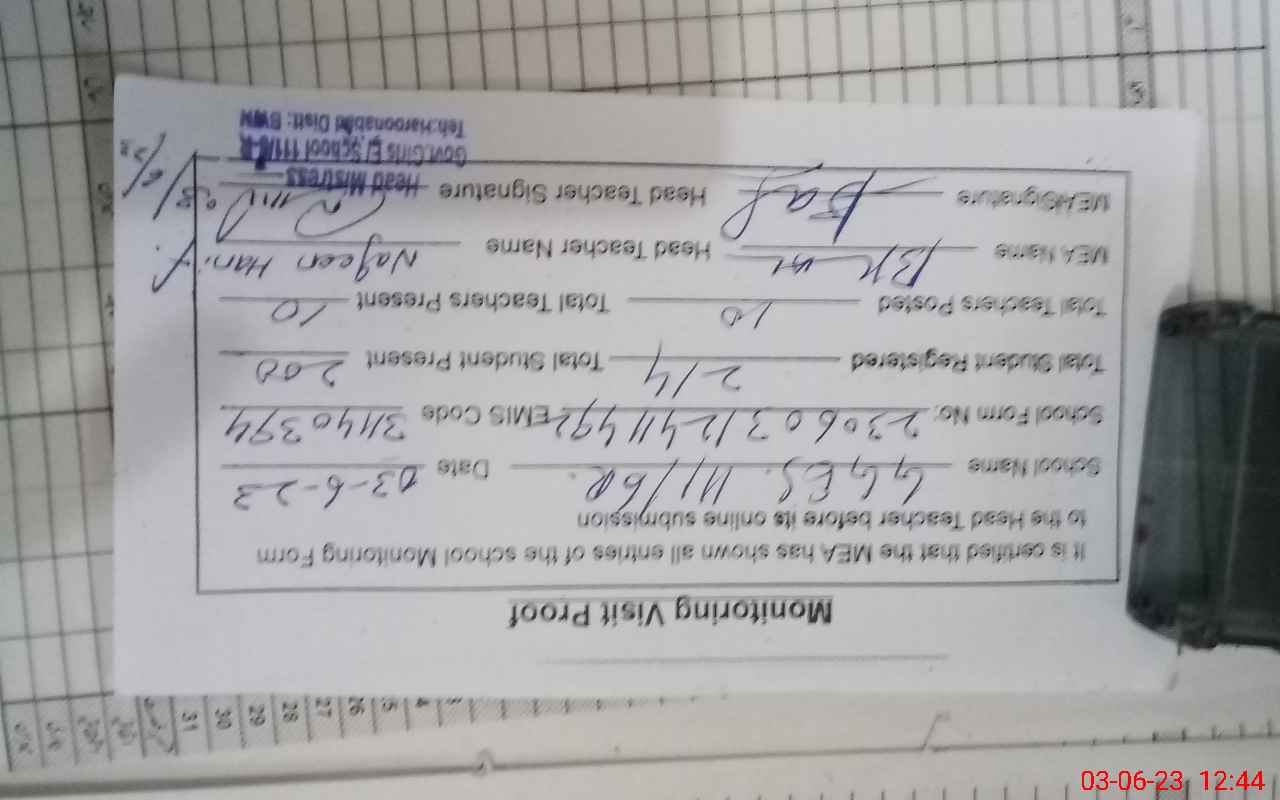 Monitoring Visit Proof
It is certified that the MEA has shown all entries of the school Monitoring Form
to the Head Teacher before its online submission
School Name GGES. 111/6R. Date 03-6-23
School Form No. EMIS Code 31140394
Total Student Registered 214 Total Student Present 200
Total Teachers Posted 10 Total Teachers Present 10
MEA Name Head Teacher Name Nageen Hanif
MEA Signature Head Teacher Signature
Head Mistress
Govt.Girls E/School 111/6-R
Teh:Haroonabad Distt: BWN
31 30 29 28 27 26
03-06-23 12:44